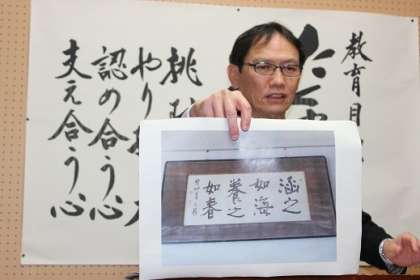 教育目
た
挑
やり
認め合う心
支え合う心
涵之
如海
養之
如春